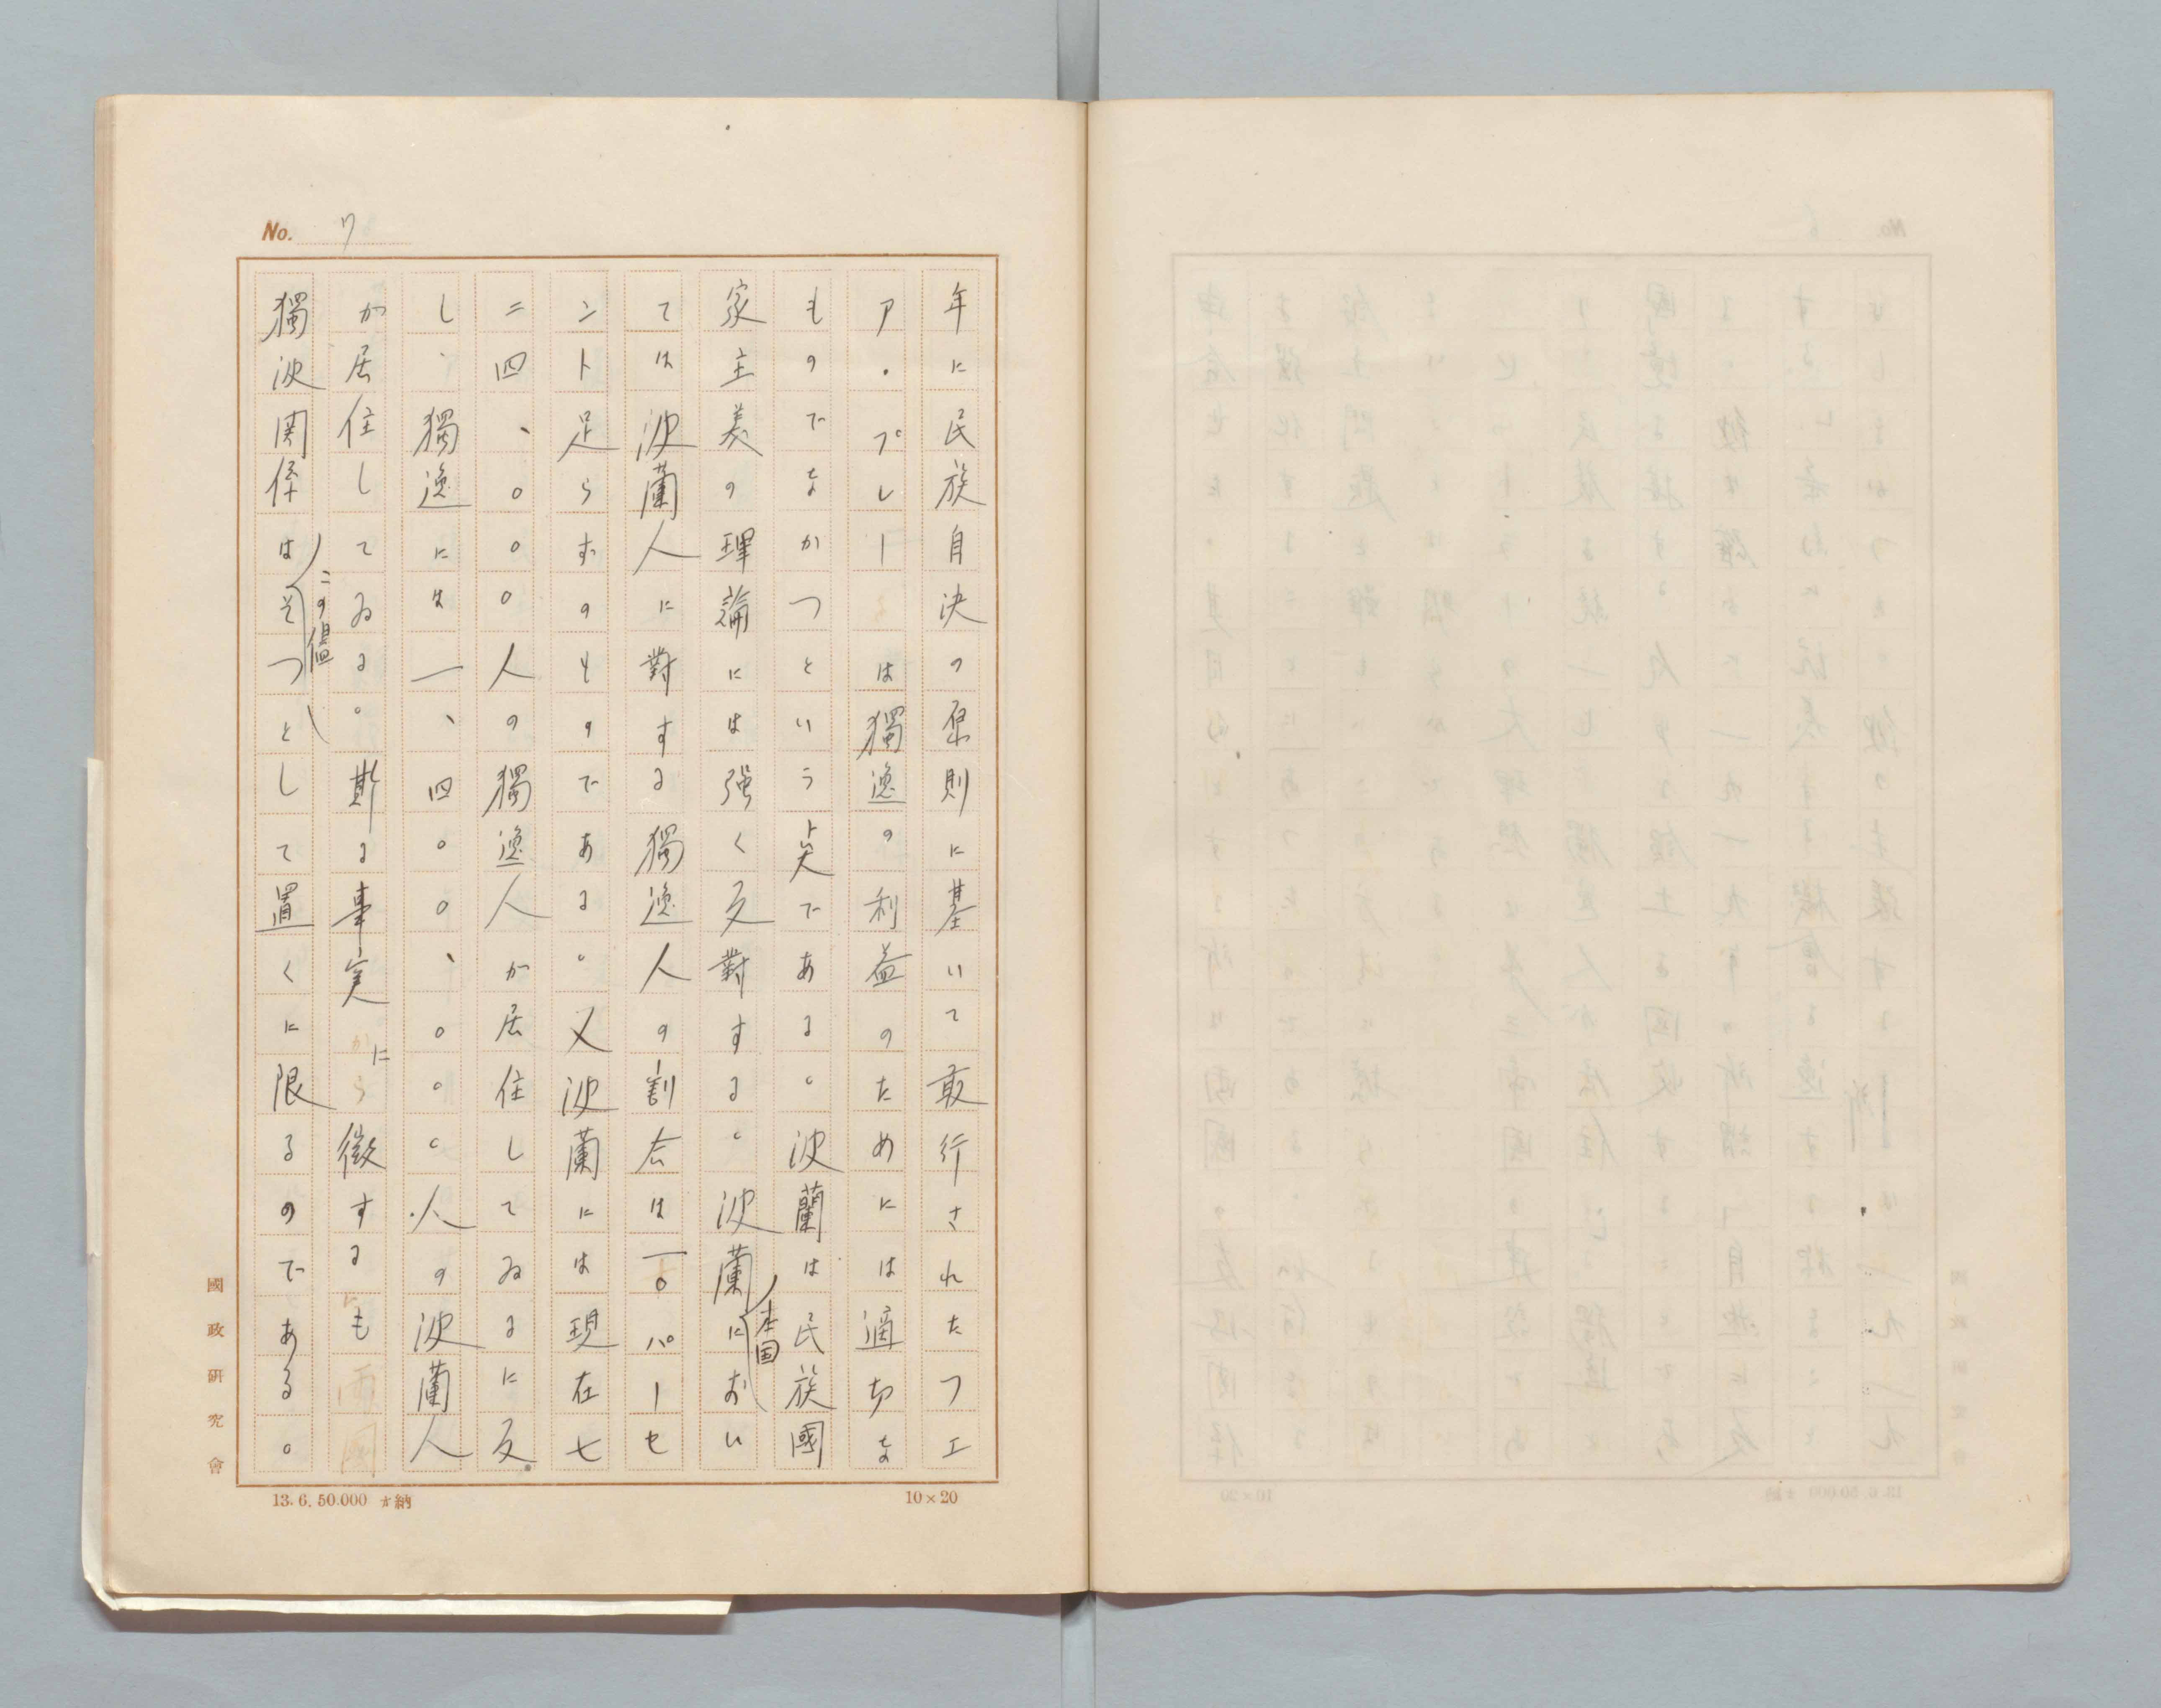 No. 7
年に民族自決の原則に基いて敢行されたフェ
ア・プレーは獨逸の利益のためには適切な
ものでなかつたという点である。波蘭は民族國
家主義の理論には強く反對する。波蘭本国におい
ては波蘭人に對する獨逸人の割合は一〇パーセ
ント足らずのものである。又波蘭には現在七
二四、〇〇〇人の獨逸人が居住してゐるに反
し、獨逸には一、四〇〇、〇〇〇人の波蘭人
が居住してゐる。斯る事実に徴するも
獨波関係はこの儘そつとして置くに限るのである。
國政研究會
13.6.50.000 納
10×20